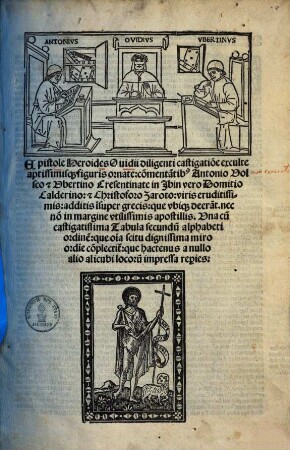 ANTONIVS OVIDIVS VBERTINVS
Epistole Heroides Ouidii diligenti castigatiõe exculte
aptissimisq; figuris ornate: cõmentãtibꝰ Antonio Vol
sco ⁊ Vbertino Cresentinate in Ibin vero Domitio
Calderino: ⁊ Christoforo Zaroto: viris eruditissi
mis: additis insuper grecis: que vbiq; deerãt. nec
nõ in margine vtilissimis apostilis. Vna cũ
castigatissima Tabula secundũ alphabeti
ordinẽ: que oĩa scitu dignissima miro
ordie cõplectit̃: que hactenus a nullo
alio alicubi locorũ impressa reꝑies: